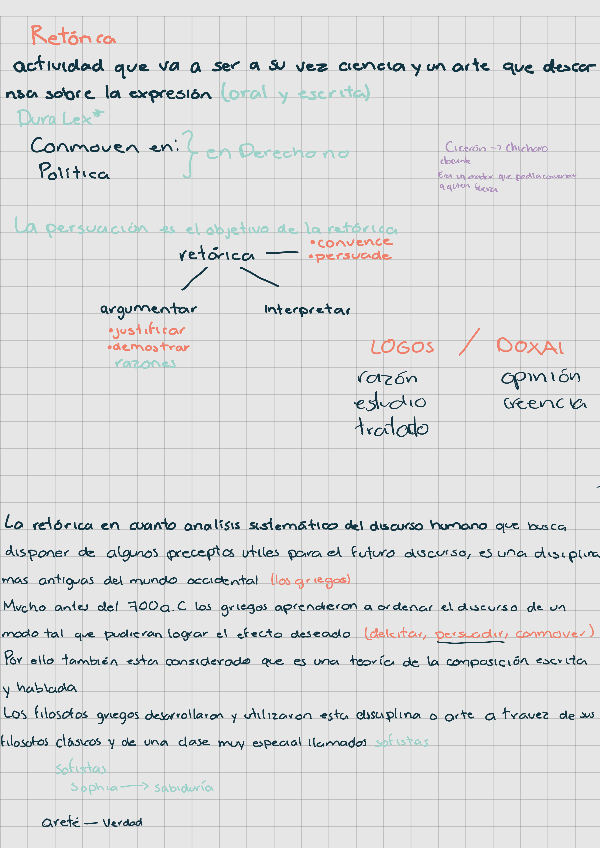 Retórica
actividad que va a ser a su vez ciencia y un arte que descan
nsa sobre la expresión (oral y escrita)
Dura Lex*
Conmoven en: } en Derecho no
Política
Cicerón → chicharo
Era un orador que podía convencer
a quien fuera
La persuación es el objetivo de la retórica
retórica — • convence
• persuade
argumentar interpretar
• justificar
• demostrar
razones
LOGOS / DOXAI
razón opinión
estudio creencia
tratado
La retórica en cuanto analisis sistemático del discurso humano que busca
disponer de algunos preceptos utiles para el futuro discurso, es una disciplina
mas antiguas del mundo occidental (los griegos)
Mucho antes del 700a.C los griegos aprendieron a ordenar el discurso de un
modo tal que pudieran lograr el efecto deseado (deleitar, persuadir, conmover)
Por ello también esta considerado que es una teoría de la composición escrita
y hablada
Los filosofos griegos desarrollaron y utilizaron esta disciplina o arte a travez de sus
filosofos clásicos y de una clase muy especial llamados sofistas
sofistas
Sophia → sabiduría
areté — Verdad